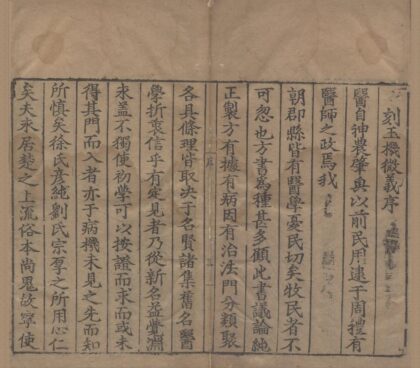 刻玉機微義序
醫自神農肇典以前民用逮于周禮有
醫師之政焉我
朝郡縣皆有醫學憂民切矣牧民者不
可忽也方書為種甚多顧此書議論純
正製方有據有病因有治法門分類聚
序
各具條理皆取決于名賢諸集舊名醫
學折衷信乎有定見者乃從新名益覺淵
永蓋不獨使初學可以按證而求而或未
得其門而入者亦于病機未見之先而知
所慎矣徐氏彦純劉氏宗厚之所用心仁
矣夫永居楚之上流俗本尚鬼故寧使